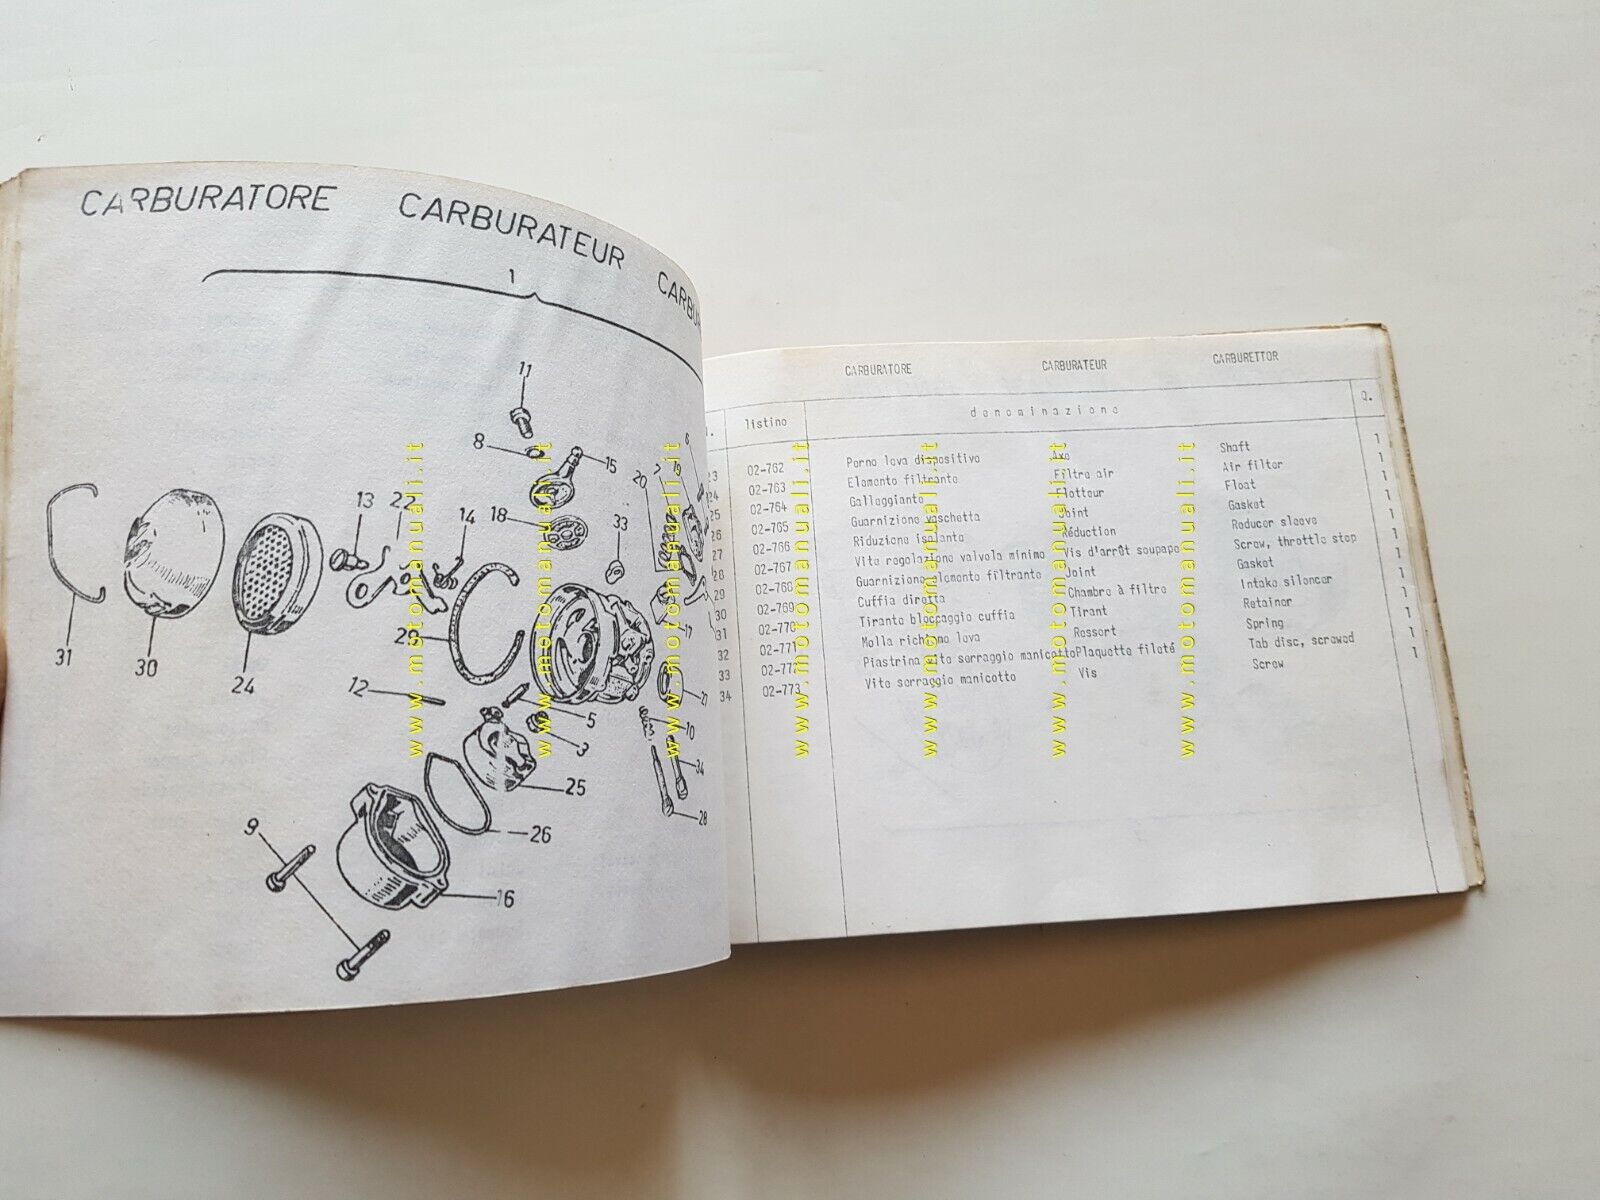 CARBURATORE CARBURATEUR CARBU
1
11
8
15
18
33
20
7
19
6
13
22
14
31
30
24
29
12
5
3
17
27
10
34
28
25
26
9
16
CARBURATORE CARBURATEUR CARBURETTOR
listino denominazione Q.
23 02-762 Perno leva dispositivo Axe Shaft 1
24 02-763 Elemento filtrante Filtre air Air filter 1
25 02-764 Galleggiante Flotteur Float 1
26 02-765 Guarnizione vaschetta Joint Gasket 1
27 02-766 Riduzione isolante Réduction Reducer sleeve 1
28 02-767 Vite regolazione valvola minimo Vis d'arrêt soupape Screw, throttle stop 1
29 02-768 Guarnizione elemento filtrante Joint Gasket 1
30 02-769 Cuffia diretta Chambre à filtre Intake silencer 1
31 02-770 Tirante bloccaggio cuffia Tirant Retainer 1
32 02-771 Molla richiamo leva Ressort Spring 1
33 02-772 Piastrina vite serraggio manicotto Plaquette fileté Tab disc, screwed 1
34 02-773 Vite serraggio manicotto Vis Screw 1
www.motomanuali.it
www.motomanuali.it
www.motomanuali.it
www.motomanuali.it
www.motomanuali.it
www.motomanuali.it
www.motomanuali.it